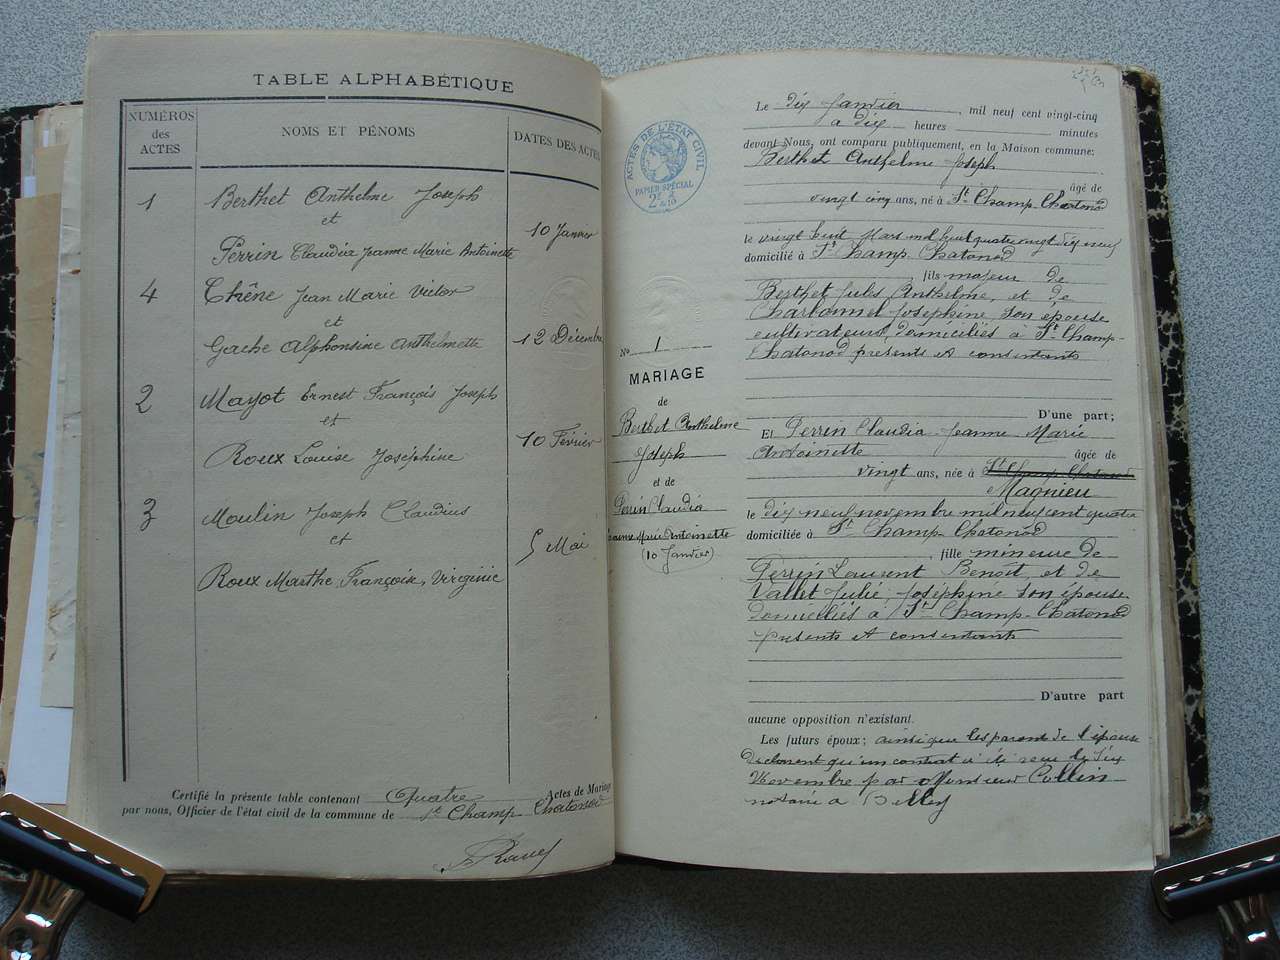 TABLE ALPHABÉTIQUE
NUMÉROS des ACTES
NOMS ET PÉNOMS
DATES DES ACTES
1 Berthet Anthelme Joseph
et
10 Janvier
Perrin Claudia Jeanne Marie Antoinette
4 Chêne Jean Marie Victor
et
12 Décembre
Gache Alphonsine Anthelmette
2 Mayot Ernest François Joseph
et
10 Février
Roux Louise Joséphine
3 Moulin Joseph Claudius
et
5 Mai
Roux Marthe Françoise, Virginie
Certifié la présente table contenant Quatre Actes de Mariage
par nous, Officier de l'état civil de la commune de St Champ Chatonod
ACTES DE L'ÉTAT CIVIL
PAPIER SPÉCIAL
No 1
MARIAGE
de
Berthet Anthelme
Joseph
et de
Perrin Claudia
Jeanne Marie Antoinette
(10 Janvier)
Le dix Janvier, mil neuf cent vingt-cinq
à dix heures minutes
devant Nous, ont comparu publiquement, en la Maison commune:
Berthet Anthelme Joseph
âgé de
vingt cinq ans, né à St Champ Chatonod
le vingt huit Mars mil huit quatre vingt dix neuf
domicilié à St Champ Chatonod
, fils majeur de
Berthet Jules Anthelme, et de
Charbonnet Joséphine son épouse
cultivateurs, domiciliés à St Champ-
Chatonod présents et consentants
D'une part;
Et Perrin Claudia Jeanne Marie
Antoinette âgée de
vingt ans, née à St Champ Chatonod
Magnieu
le dix neuf novembre mil neuf cent quatre
domiciliée à St Champ-Chatonod
, fille mineure de
Perrin Laurent Benoît, et de
Vallet Julie, Joséphine son épouse
domiciliés à St Champ-Chatonod
présents et consentants
D'autre part
aucune opposition n'existant.
Les futurs époux; ainsi que les parents de l'épouse
déclarent qu'un contrat a été reçu le dix
Novembre par Monsieur Collin
notaire à Belley